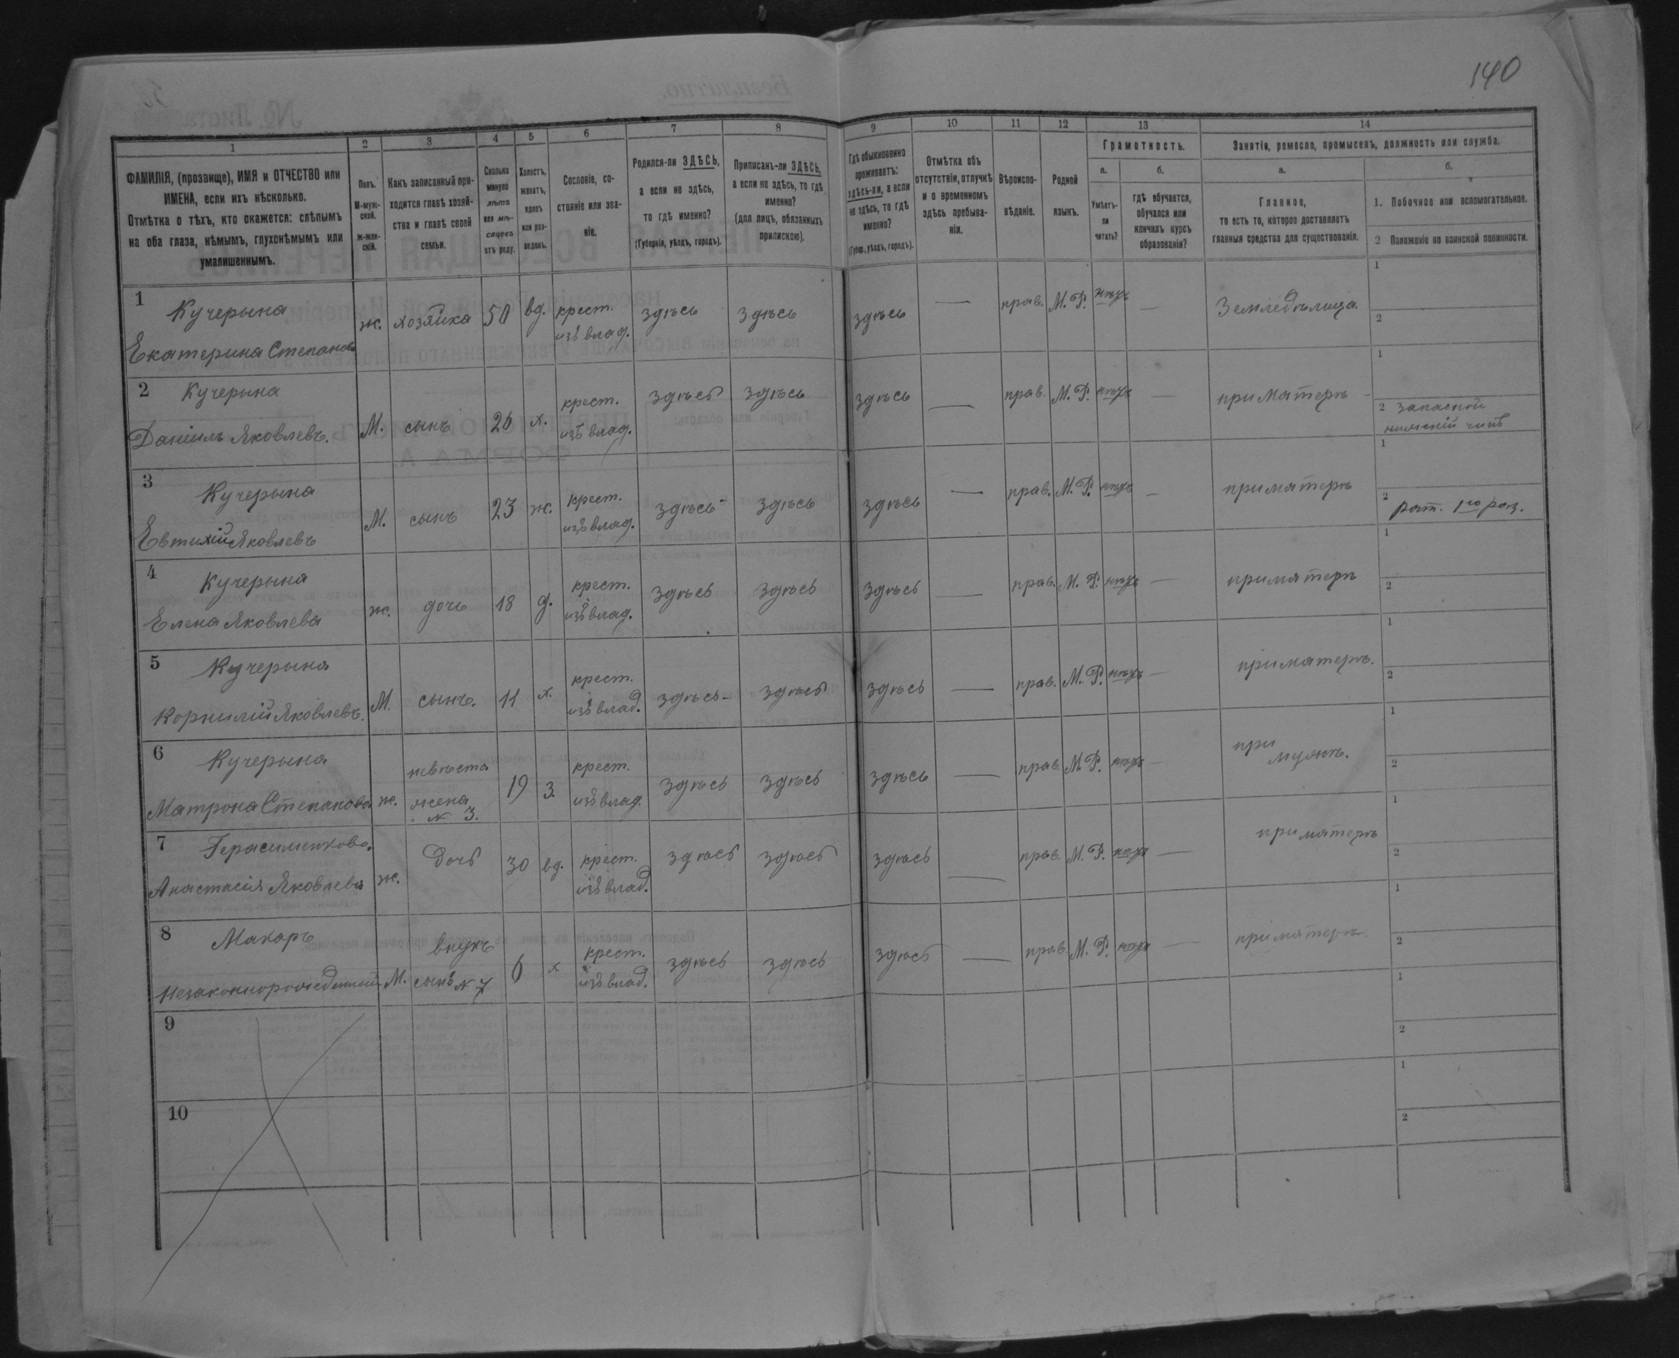 140
1
2
3
4
5
6
7
8
9
10
11
12
13
14
ФАМИЛІЯ, (прозвище), ИМЯ и ОТЧЕСТВО или
ИМЕНА, если ихъ нѣсколько.
Отмѣтка о тѣхъ, кто окажется: слѣпымъ
на оба глаза, нѣмымъ, глухонѣмымъ или
умалишеннымъ.
Полъ.
М-муж-
ской.
Ж-жен-
скій.
Какъ записанный при-
ходится главѣ хозяй-
ства и главѣ своей
семьи.
Сколько
минуло
лѣтъ
или мѣ-
сяцевъ
отъ роду.
Холостъ,
женатъ,
вдовъ
или раз-
веденъ.
Сословіе, со-
стояніе или зва-
ніе.
Родился-ли ЗДѢСЬ,
а если не здѣсь,
то гдѣ именно?
(Губернія, уѣздъ, городъ).
Приписанъ-ли ЗДѢСЬ,
а если не здѣсь, то гдѣ
именно?
(для лицъ, обязанныхъ
припискою).
Гдѣ обыкновенно
проживаетъ:
здѣсь-ли, а если
не здѣсь, то гдѣ
именно?
(Губер., уѣздъ, городъ).
Отмѣтка объ
отсутствіи, отлучкѣ
и о временномъ
здѣсь пребыва-
ніи.
Вѣроиспо-
вѣданіе.
Родной
языкъ.
Грамотность.
а.
Умѣетъ-
ли
читать?
б.
гдѣ обучается,
обучался или
кончилъ курсъ
образованія?
Занятіе, ремесло, промыселъ, должность или служба.
а.
Главное,
то есть то, которое доставляетъ
главныя средства для существованія.
б.
1. Побочное или вспомогательное.
2 Положеніе по воинской повинности.
1 Кучерына
Екатерина Степанова ж. хозяйка 50 вд. крест. изъ влад. здѣсь здѣсь здѣсь — прав. М. Р. нѣтъ — Земледѣлица. 1
2
2 Кучерына
Даніилъ Яковлевъ. М. сынъ 26 х. крест. изъ влад. здѣсь здѣсь здѣсь — прав. М. Р. нѣтъ — при матери 1
2 запасной
нижній чинъ
3 Кучерына
Евтихій Яковлевъ М. сынъ 23 ж. крест. изъ влад. здѣсь здѣсь здѣсь — прав. М. Р. нѣтъ — при матери 1
2 рат. 1го раз.
4 Кучерына
Елена Яковлева ж. дочь 18 д. крест. изъ влад. здѣсь здѣсь здѣсь — прав. М. Р. нѣтъ — при матери 1
2
5 Кучерына
Корнилій Яковлевъ. М. сынъ. 11 х. крест. изъ влад. здѣсь здѣсь здѣсь — прав. М. Р. нѣтъ — при матери. 1
2
6 Кучерына
Матрона Степанова ж. невѣста жена N 3. 19 з. крест. изъ влад. здѣсь здѣсь здѣсь — прав. М. Р. нѣтъ — при мужѣ. 1
2
7 Герасименкова
Анастасія Яковлева ж. дочь 30 вд. крест. изъ влад. здѣсь здѣсь здѣсь — прав. М. Р. нѣтъ — при матери 1
2
8 Макаръ
незаконнорожденный М. внукъ сынъ N 7 6 х крест. изъ влад. здѣсь здѣсь здѣсь — прав. М. Р. нѣтъ — при матери. 1
2
9
1
2
10
1
2